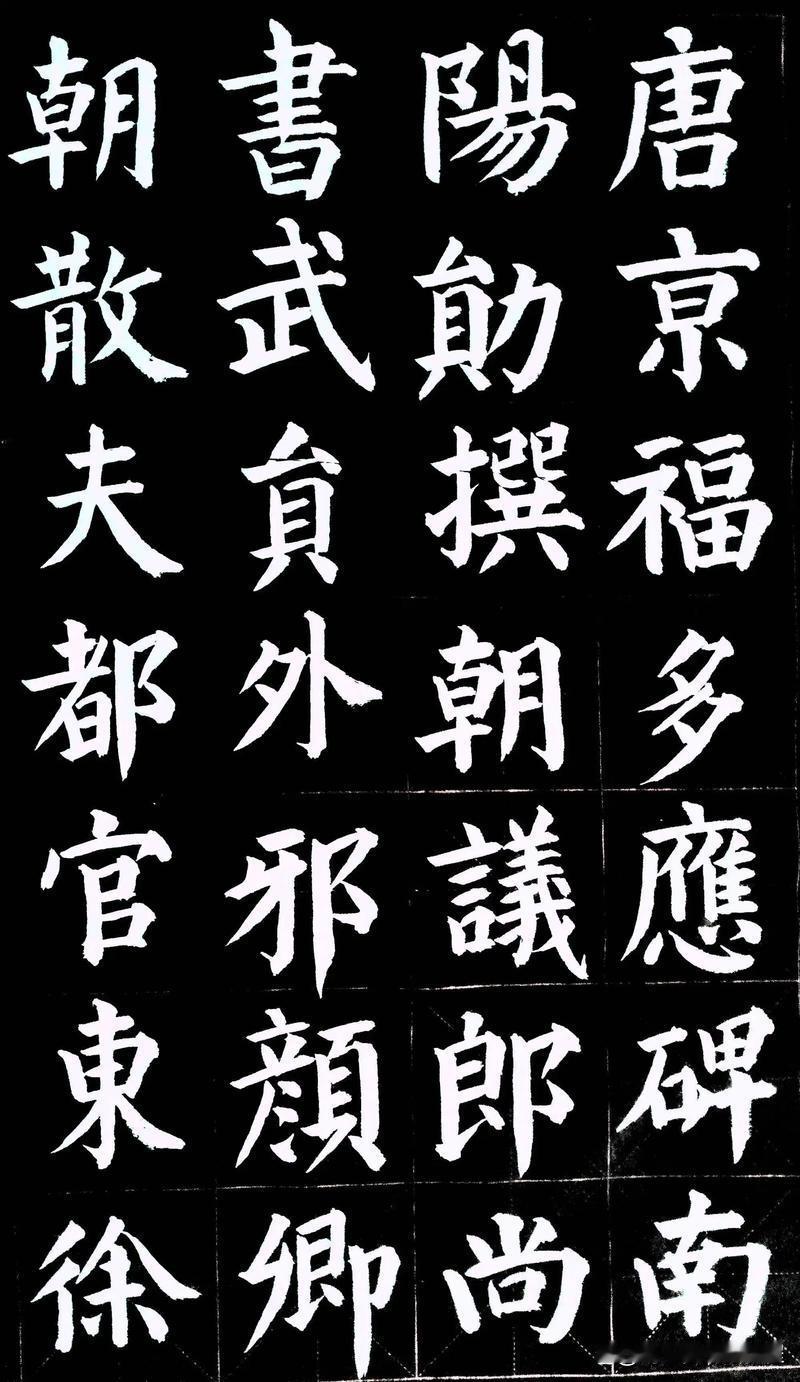 唐亰福多應碑南
陽勛撰朝議郎尚
書武貟外邪顔卿
朝散夫都官東徐